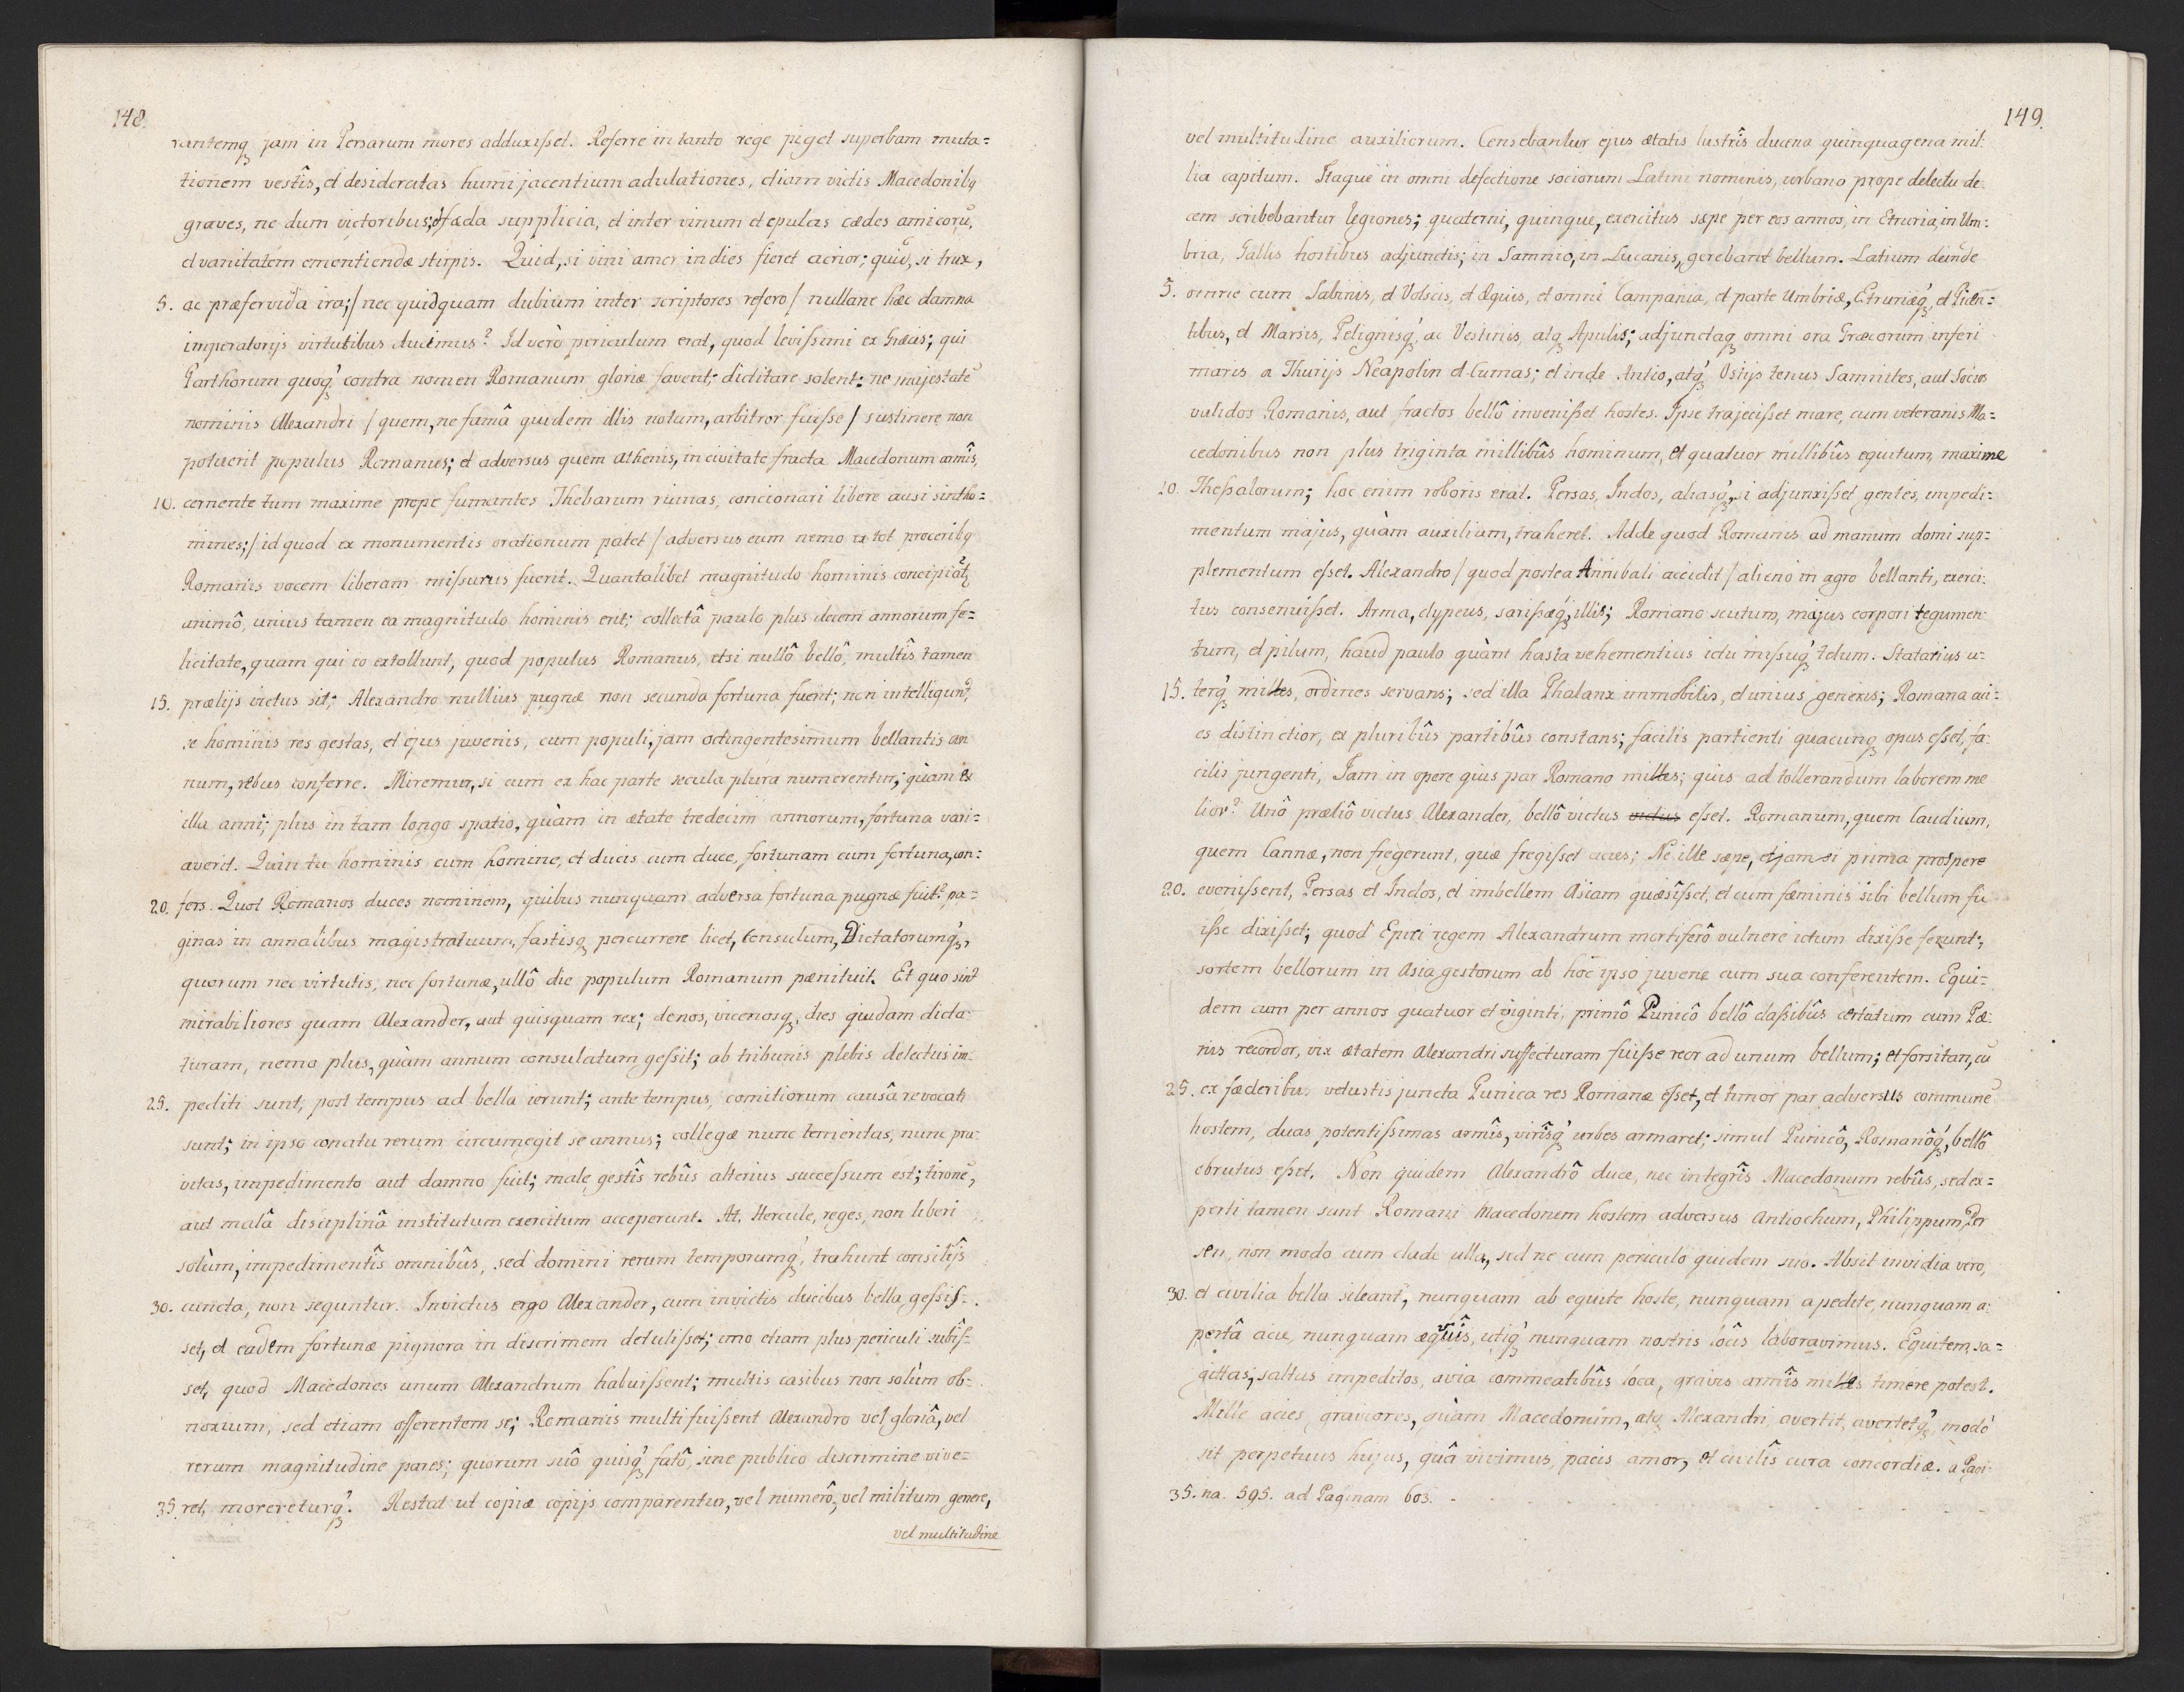 148.
rantemq₃ jam in Persarum mores adduxisset. Referre in tanto rege piget superbam muta=
tionem vestîs, et desideratas humi jacentium adulationes, etiam victis Macedonibꝫ
graves, ne dum victoribus; et fæda supplicia, et inter vinum et epulas cædes amicorū,
et vanitatem ementiendæ stirpis. Quid, si vini amor in dies fieret acrior; quid, si trux,
5. ac præfervida ira; / nec quidquam dubium inter scriptores refero / nullane hæc damna
imperatorijs virtutibus ducimus? Id verò periculum erat, quod levissimi ex Græcis; qui
Parthorum quoq₃ contra nomen Romanum gloriæ favent; dictitare solent: ne majestatē
nominis Alexandri / quem, ne famâ quidem illis notum, arbitror fuisse / sustinere non
potuerit populus Romanus; et adversus quem Athenis, in civitate fracta Macedonum armîs,
10. cernente tum maxime prope fumantes Thebarum ruinas, concionari libere ausi sint ho=
mines; / id quod ex monumentis orationum patet / adversus eum nemo ex tot proceribꝫ
Romanis vocem liberam missurus fuerit. Quantalibet magnitudo hominis concipiat̄
animô, unius tamen ea magnitudo hominis erit; collectâ paulo plus decem annorum fe=
licitate, quam qui eo extollunt, quod populus Romanus, etsi nullô bellô, multîs tamen
15. prælijs victus sit; Alexandro nullius pugnæ non secunda fortuna fuerit; non intelligunt,
se hominis res gestas, et ejus juvenis, cum populi, jam octingentesimum bellantis an
num, rebus conferre. Miremur, si cum ex hac parte secula plura numerentur; quàm ex
illa anni; plus in tam longo spatio, quàm in ætate tredecim annorum, fortuna vari=
averit. Quin tu hominis cum homine, et ducis cum duce, fortunam cum fortuna, con=
20. fers. Quot Romanos duces nominem, quibus nunquam adversa fortuna pugnæ fuit? pa=
ginas in annalibus magistratuum, fastisq₃ percurrere licet, Consulum, Dictatorumq₃,
quorum nec virtutis, nec fortunæ, ullô die populum Romanum pænituit. Et quo sint
mirabiliores quam Alexander, aut quisquam rex; denos, vicenosq₃, dies quidam dicta=
turam, nemo plus, quàm annum consulatum gessit; ab tribunis plebis delectus im=
25. pediti sunt; post tempus ad bella ierunt; ante tempus, comitiorum causâ revocati
sunt; in ipso conatu rerum circumegit se annus; collegæ nunc temeritas, nunc pra=
vitas, impedimento aut damno fuit; male gestîs rebûs alterius successum est; tironē,
aut malâ disciplinâ institutum exercitum acceperunt. At, Hercule, reges, non liberi
solùm, impedimentîs omnibûs, sed domini rerum temporumq₃, trahunt consilijs
30. cuncta, non sequntur. Invictus ergo Alexander, cum invictis ducibus bella gessis=
set, et eadem fortunæ pignora in discrimem detulisset; imo etiam plus periculi subis=
set, quod Macedones unum Alexandrum habuissent; multis casibus non solùm ob=
noxium, sed etiam offerentem se; Romanis multi fuissent Alexandro vel gloriâ, vel
rerum magnitudine pares; quorum suô quisq₃ fatô, sine publico discrimine vive=
35. ret, morereturq₃. Restat ut copiæ copijs comparentur, vel numerô, vel militum genere,
vel multitudine
149.
vel multitudine auxiliorum. Censebantur ejus ætatis lustrîs ducena quinquagena mil=
lia capitum. Itaque in omni defectione sociorum Latini nominis, urbano prope delectu de=
cem scribebantur legiones; quaterni, quinque, exercitus sæpe per eos annos, in Etruria, in Um=
bria, Gallis hostibus adjunctis; in Samnio, in Lucanis, gerebant bellum. Latium deinde
5. omne cum Sabinis, et Volscis, et Æquis, et omni Campania, et parte Umbriæ, Etruriæq₃, et Picen=
tibus, et Marsis, Pelignisq₃, ac Vestinis, atq₃ Apulis; adjunctaq₃ omni ora Græcorum inferi
maris a Thurijs Neapolin et Cumas; et inde Antio, atq₃ Ostijs tenus Samnites, aut Socios
validos Romanis, aut fractos bellô invenisset hostes. Ipse trajecisset mare, cum veteranis Ma=
cedonibus non plus triginta millibûs hominum, et quatuor millibûs equitum, maxime
10. Thessalorum; hoc enim roboris erat. Persas, Indos, aliasq₃, si adjunxisset gentes, impedi=
mentum majus, quàm auxilium, traheret. Adde quod Romanis ad manum domi sup=
plementum esset. Alexandro / quod postea Annibali accidit / alieno in agro bellanti, exerci=
tus consenuisset. Arma, clypeus, sarissæq₃, illis; Romano scutum, majus corpori tegumen=
tum, et pilum, haud paulo quàm hasta vehementius ictu missuq₃ telum. Statarius u=
15. terq₃ miles, ordines servans; sed illa Phalanx immobilis, et unius generis; Romana aci=
es distinctior, ex pluribûs partibûs constans; facilis partienti quacunq₃ opus esset, fa=
cilis jungenti, Jam in opere quis par Romano miles; quis ad tollerandum laborem me
lior? Unô præliô victus Alexander, bellô victus victus esset. Romanum, quem Caudium,
quem Cannæ, non fregerunt, quæ fregisset acies; Ne ille sæpe, etjam si prima prospere
20. evenissent, Persas et Indos, et imbellem Asiam quæsîsset, et cum fæminis sibi bellum fu
isse dixisset; quod Epiri regem Alexandrum mortiferô vulnere ictum dixisse ferunt;
sortem bellorum in Asia gestorum ab hoc ipso juvene cum sua conferentem. Equi=
dem cum per annos quatuor et viginti, primô Punicô bellô classibûs certatum cum Pæ=
nis recordor, vix ætatem Alexandri suffecturam fuisse reor ad unum bellum; et forsitan, cū
25. ex fæderibus vetustis juncta Punica res Romanæ esset, et timor par adversus communē
hostem, duas potentissimas armîs, virîsq₃ urbes armaret; simul Punicô, Romanôq₃, bellô
obrutus esset. Non quidem Alexandrô duce, nec integrîs Macedonum rebûs, sed ex=
perti tamen sunt Romani Macedonem hostem adversus Antiochum, Philippum, Per
seu, non modo cum clade ulla, sed ne cum periculo quidem suo. Absit invidia vero,
30. et civilia bella sileant, nunquam ab equite hoste, nunquam a pedite, nunquam a=
pertâ acie, nunquam æquis, utiq₃ nunquam nostris locîs laboravimus. Equitem, sa=
gittas, saltus impeditos, avia commeatibûs loca, gravis armîs miles timere potest.
Mille acies graviores, quàm Macedonum, atq₃ Alexandri avertit, avertetq₃, modò
sit perpetuus hujus, quâ vivimus, pacis amor, et civilîs cura concordiæ. a Pagi=
35. na. 595. ad Paginam 603.